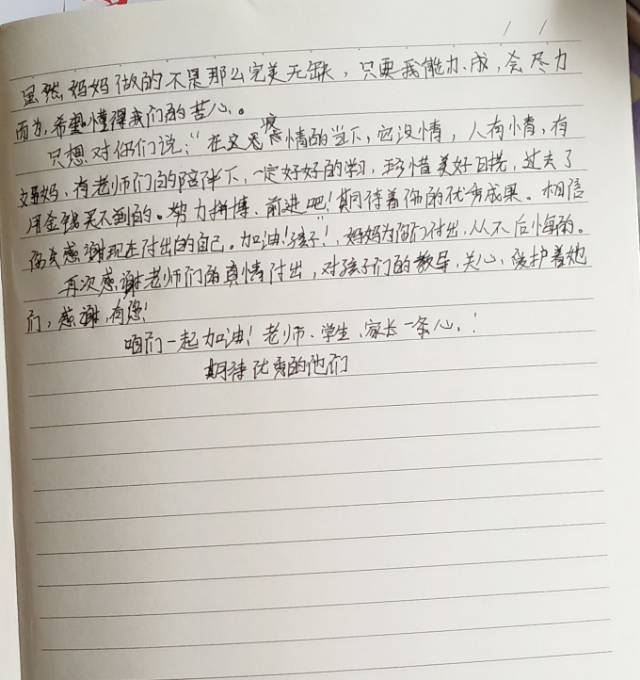 虽然妈妈做的不是那么完美无缺，只要我能力成，会尽力
而为，希望懂得我们的苦心。
只想对你们说：“在这无情的当下，它没情，人有情，有
妈，有老师们的陪伴下，一定好好的学习，珍惜美好时光，过去了
用金钱买不到的。努力拼博、前进吧！期待着你的优秀成果。相信
你会感谢现在付出的自己。加油！孩子！”，妈妈为你们付出，从不后悔的。
再次感谢老师们的真情付出，对孩子们的教导、关心、爱护着她
们，感谢有您！
咱们一起加油！老师、学生、家长一条心，！
期待优秀的他们